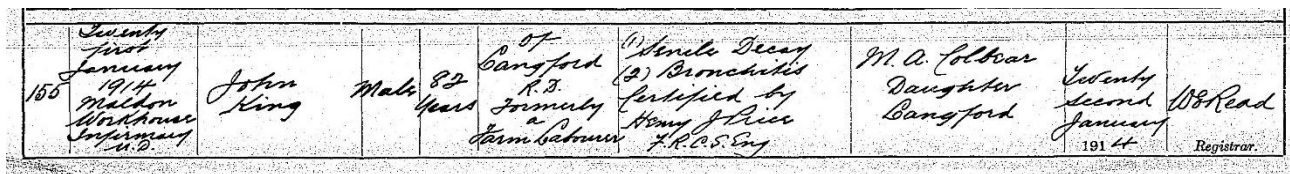 155
Twenty
first
January
1914
Maldon
Workhouse
Infirmary
U.D.
John
King
Male
82
Years
of
Langford
R.D.
Formerly
a
Farm Labourer
(1) Senile Decay
(2) Bronchitis
Certified by
Henry J Price
F.R.C.S. Eng
M. A. Colbear
Daughter
Langford
Twenty
second
January
1914
W E Read
Registrar.